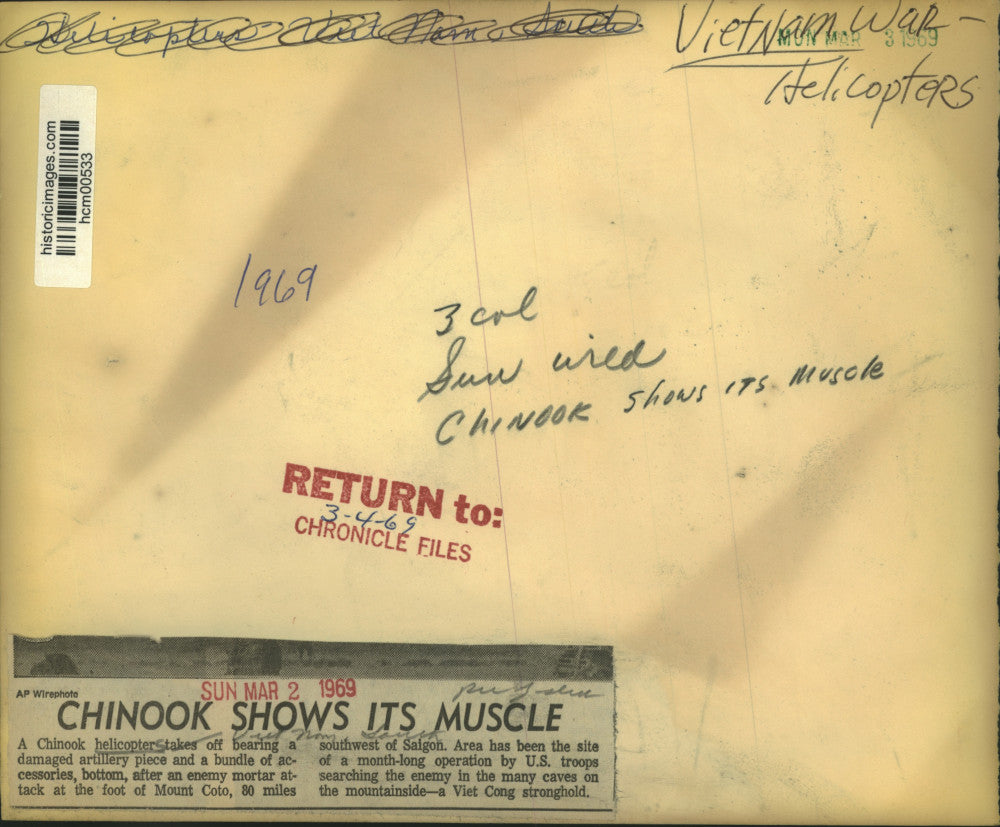 Helicopters Viet Nam, South
VietNam War -
MON MAR 3 1969
Helicopters
historicimages.com
hcm00533
1969
3 col
Sun wired
CHINOOK Shows ITS Muscle
RETURN to:
3-4-69
CHRONICLE FILES
AP Wirephoto
SUN MAR 2 1969
CHINOOK SHOWS ITS MUSCLE
Viet Nam, South
A Chinook helicopter takes off bearing a
damaged artillery piece and a bundle of ac-
cessories, bottom, after an enemy mortar at-
tack at the foot of Mount Coto, 80 miles
southwest of Saigon. Area has been the site
of a month-long operation by U.S. troops
searching the enemy in the many caves on
the mountainside—a Viet Cong stronghold.